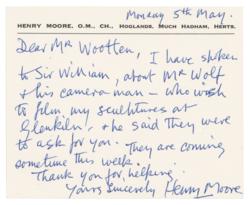 Monday 5th May.
HENRY MOORE, O.M., CH., HOGLANDS, MUCH HADHAM, HERTS.
Dear Mr Wootten, I have spoken
to Sir William, about Mr Wolf
& his camera man – who wish
to film my sculptures at
Glenkiln, & he said they were
to ask for you. They are coming
sometime this week.
Thank you for helping.
Yours sincerely Henry Moore